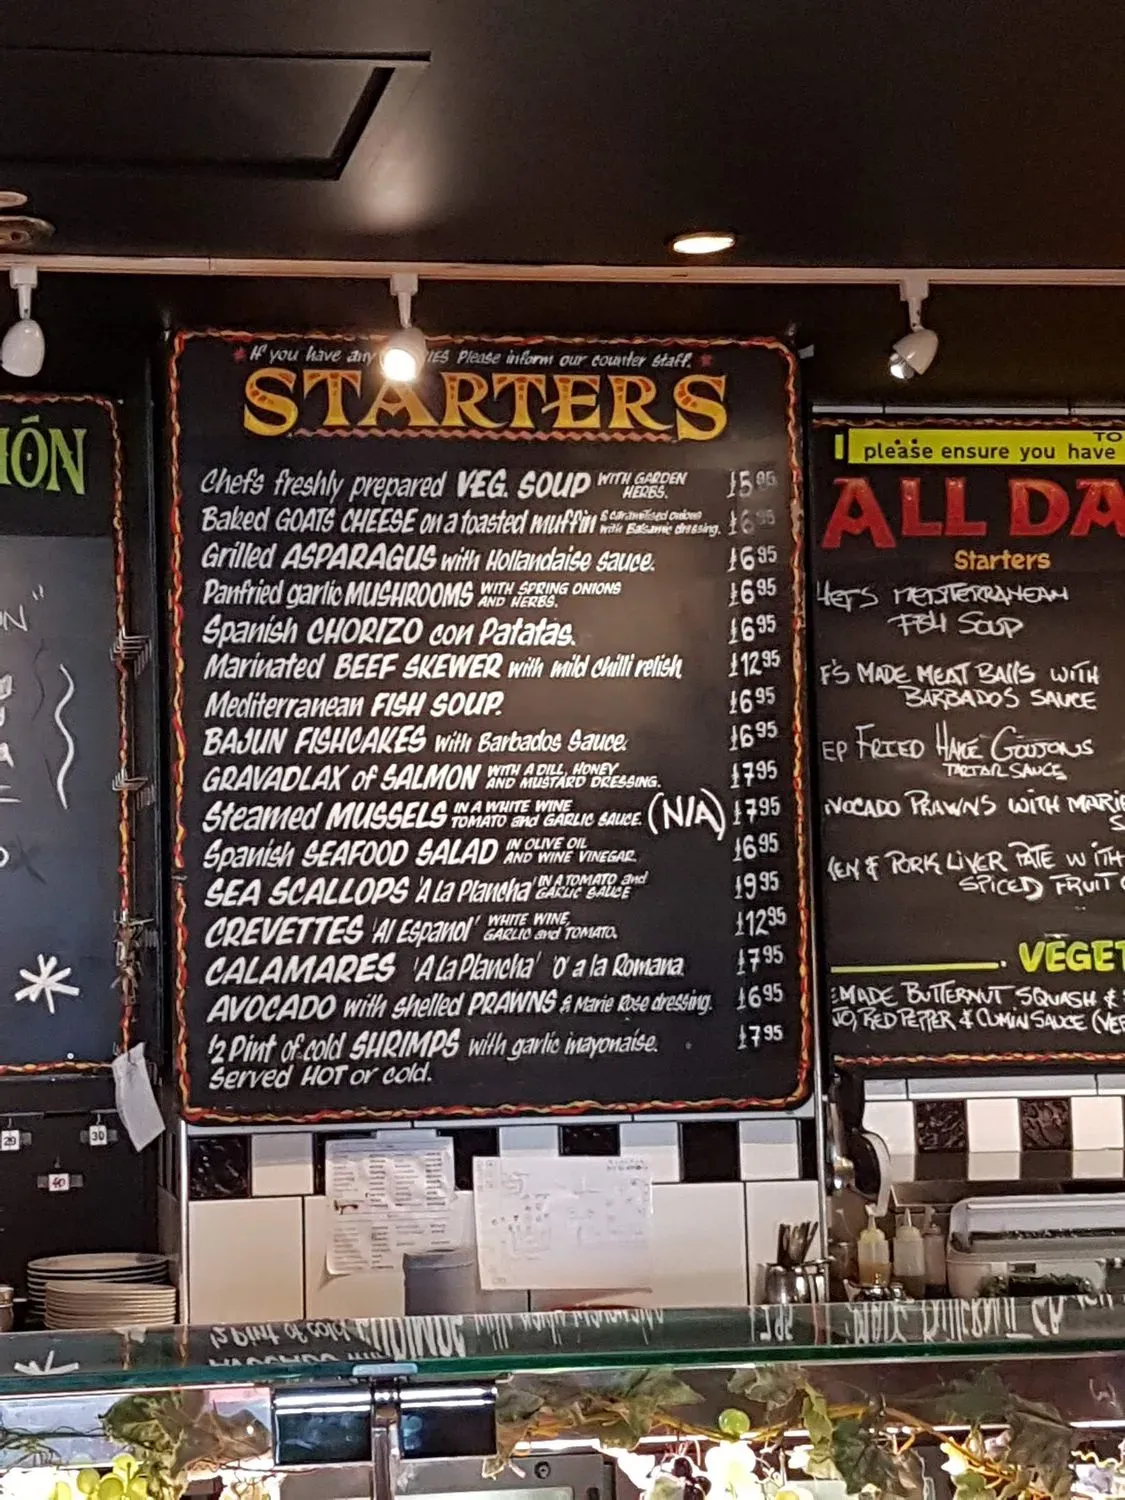 If you have any Please inform our counter staff.
STARTERS
Chefs freshly prepared VEG. SOUP WITH GARDEN HERBS. £5.95
Baked GOATS CHEESE on a toasted muffin & caramelised onions with Balsamic dressing. £6.95
Grilled ASPARAGUS with Hollandaise sauce. £6.95
Panfried garlic MUSHROOMS WITH SPRING ONIONS AND HERBS. £6.95
Spanish CHORIZO con Patatas. £6.95
Marinated BEEF SKEWER with mild chilli relish £12.95
Mediterranean FISH SOUP. £6.95
BAJUN FISHCAKES with Barbados Sauce. £6.95
GRAVADLAX of SALMON WITH A DILL, HONEY AND MUSTARD DRESSING. £7.95
Steamed MUSSELS IN A WHITE WINE TOMATO and GARLIC SAUCE. (N/A) £7.95
Spanish SEAFOOD SALAD IN OLIVE OIL AND WINE VINEGAR. £6.95
SEA SCALLOPS 'A La Plancha' IN A TOMATO and GARLIC SAUCE £9.95
CREVETTES 'Al Espanol' WHITE WINE, GARLIC and TOMATO. £12.95
CALAMARES 'A La Plancha' 'O' a la Romana £7.95
AVOCADO with shelled PRAWNS & Marie Rose dressing. £6.95
½ Pint of cold SHRIMPS with garlic mayonaise. £7.95
Served HOT or cold.
IÓN
TO
please ensure you have
ALL DA
Starters
MEDITERRANEAN
FISH SOUP
F'S MADE MEAT BALLS WITH
BARBADOS SAUCE
EP FRIED HAKE GOUJONS
TARTAR SAUCE
VOCADO PRAWNS WITH MARIE
S
KEN & PORK LIVER PATE WITH
SPICED FRUIT
VEGET
EMADE BUTTERNUT SQUASH &
TO, RED PEPPER & CUMIN SAUCE (VE
29
30
40